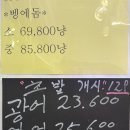 *벵에돔*
소 69,800냥
중 85,800냥
"초밥 개시" 12P
광어 23,600
연어 25,600